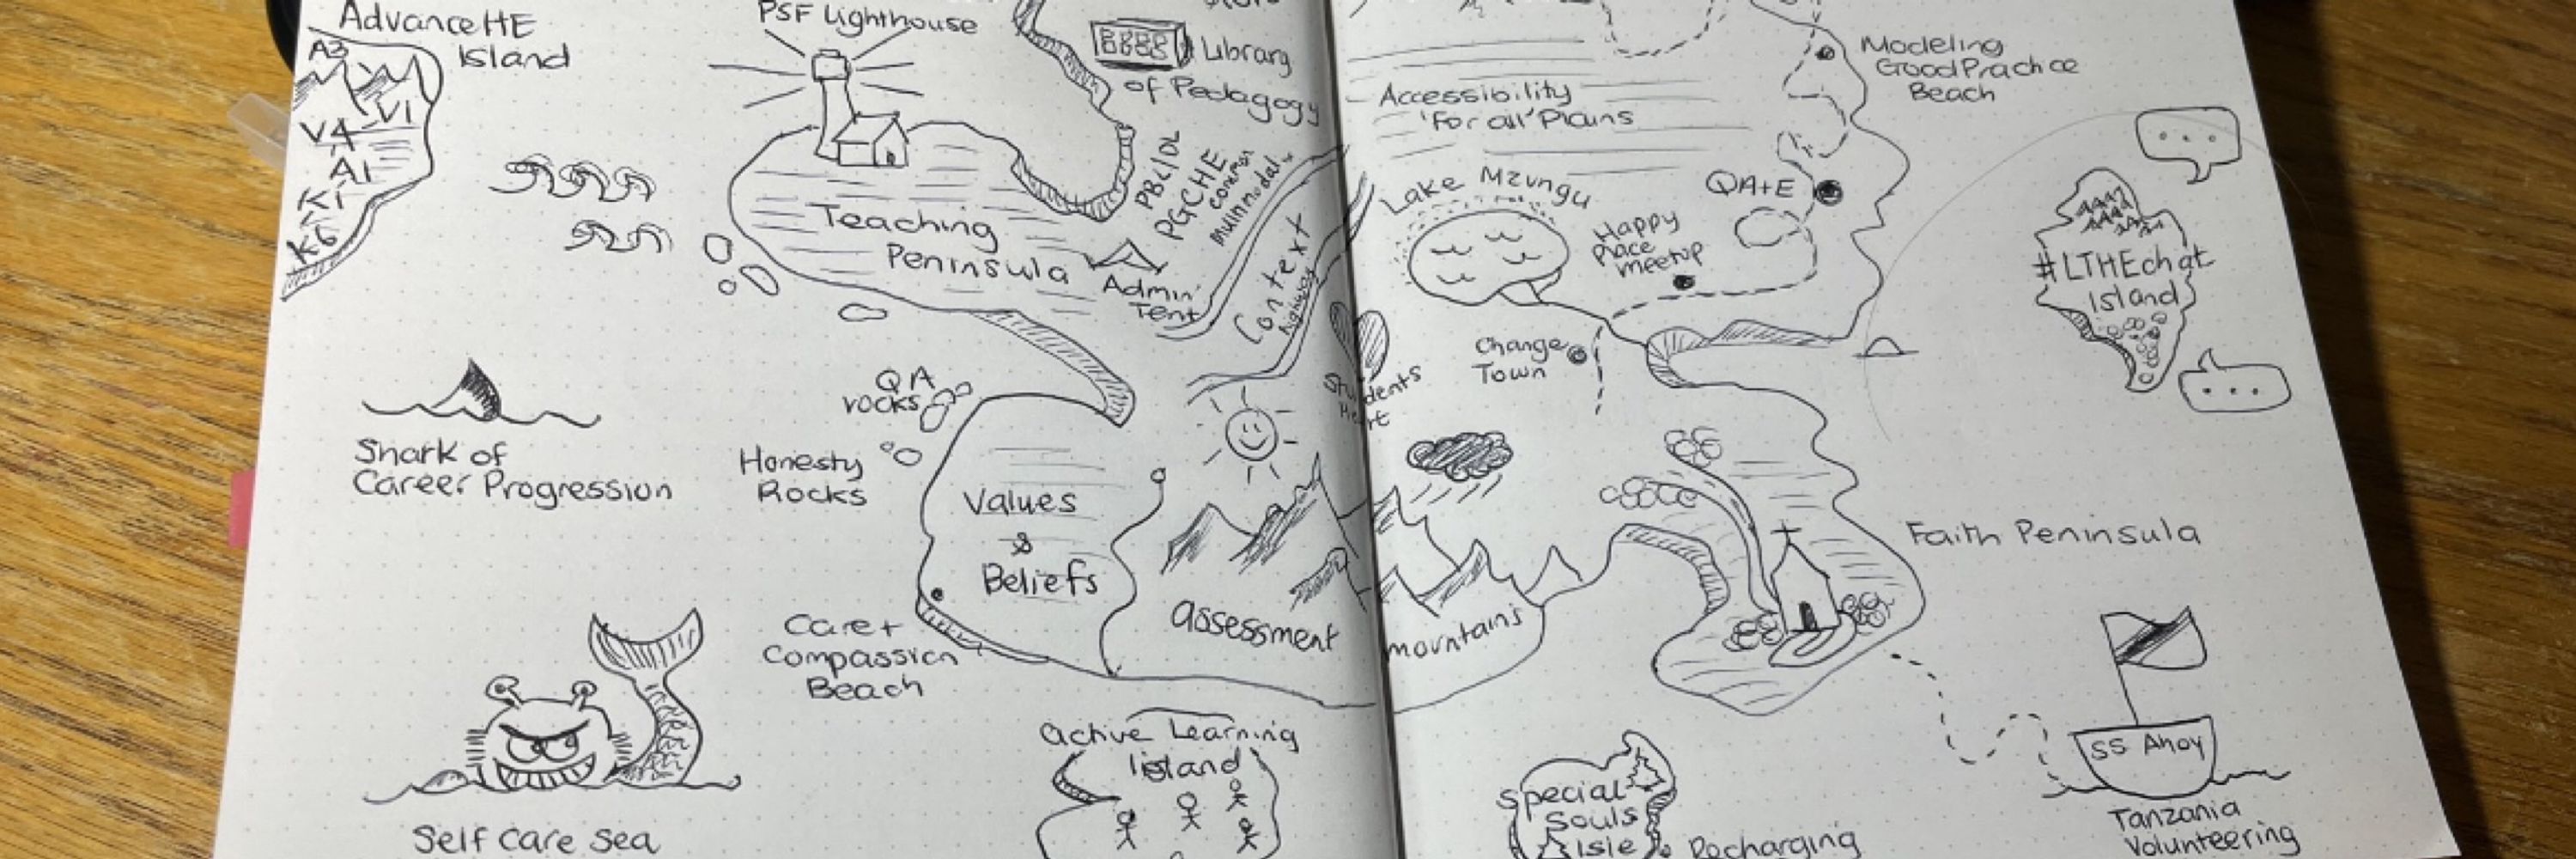 Advance HE
Island
A3
V1
V4
A1
K1
K6
PSF Lighthouse
Library
of Pedagogy
PBL/DL
PGCHE
Teaching
Peninsula
Admin
Tent
Context
highway
Accessibility
'For all' Plains
Modeling
Good Practice
Beach
Lake Mzungu
Happy
Place
meetup
QA+E
#LTHEchat
Island
Change
Town
Students
Heart
QA
rocks
Shark of
Career Progression
Honesty
Rocks
Values
&
Beliefs
assessment
mountains
Faith Peninsula
Care +
Compassion
Beach
Self Care Sea
Active Learning
Island
Special
Souls
Isle
Recharging
SS Ahoy
Tanzania
Volunteering